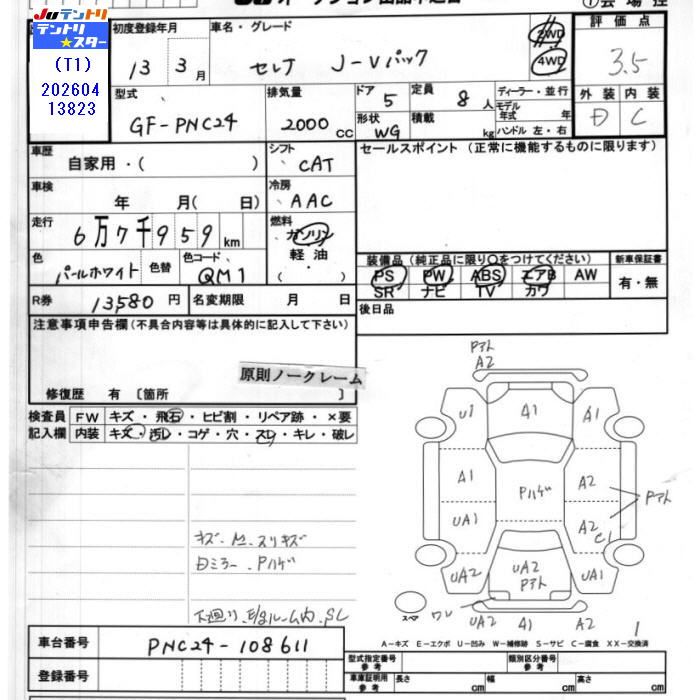 JU テントリ
テントリ★スター
(T1)
202604
13823
評価点
3.5
外装 内装
D C
初度登録年月
13 3月
車名・グレード
セレナ J-Vパック
2WD
4WD
型式
GF-PNC24
排気量
2000 cc
ドア
5
形状
WG
定員
8人
積載
kg
ディーラー・並行
モデル年式 年
ハンドル 左・右
車歴
自家用・( )
シフト
CAT
セールスポイント (正常に機能するものに限ります)
車検
年 月( 日)
冷房
AAC
走行
6万7千959km
燃料
ガソリン
軽油
・( )
色
パールホワイト
色替
色コード
QM1
装備品 (純正品に限り○をつけてください)
PS PW ABS エアB AW
SR ナビ TV カワ
新車保証書
有・無
R券 13580円
名変期限 月 日
後日品
注意事項申告欄 (不具合内容等は具体的に記入して下さい)
原則ノークレーム
修復歴 有 〔箇所 〕
検査員記入欄
FW キズ・飛石・ヒビ割・リペア跡・×要
内装 キズ・汚レ・コゲ・穴・スレ・キレ・破レ
キズ.M.スリキズ
Dミラー.Pハゲ
下廻り.E/gルーム内.SL
Pアト
A2
U1 A1 A1
A1 Pハゲ A2
Pアト
UA1 A2
C1
UA2 UA2 UA1
Pアト
スペア
ワレ
UA2 A1 A2
1
A-キズ E-エクボ U-凹み W-補修跡 S-サビ C-腐食 XX-交換済
車台番号 PNC24-108611
登録番号
型式指定番号 参考
類別区分番号 参考
車庫証明用 参考
長さ cm
幅 cm
高さ cm